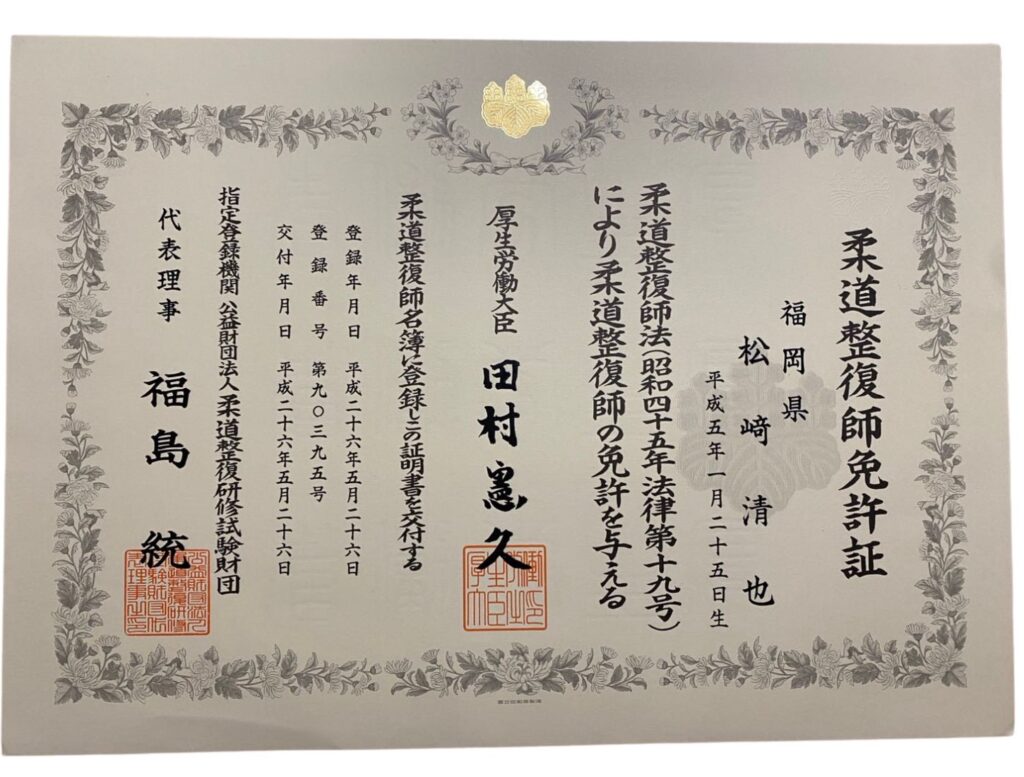 柔道整復師免許証
福岡県
松﨑清也
平成五年一月二十五日生
柔道整復師法(昭和四十五年法律第十九号)
により柔道整復師の免許を与える
厚生労働大臣 田村憲久
柔道整復師名簿に登録しこの証明書を交付する
登録年月日 平成二十六年五月二十六日
登録番号 第九〇三九五号
交付年月日 平成二十六年五月二十六日
指定登録機関 公益財団法人柔道整復研修試験財団
代表理事 福島統